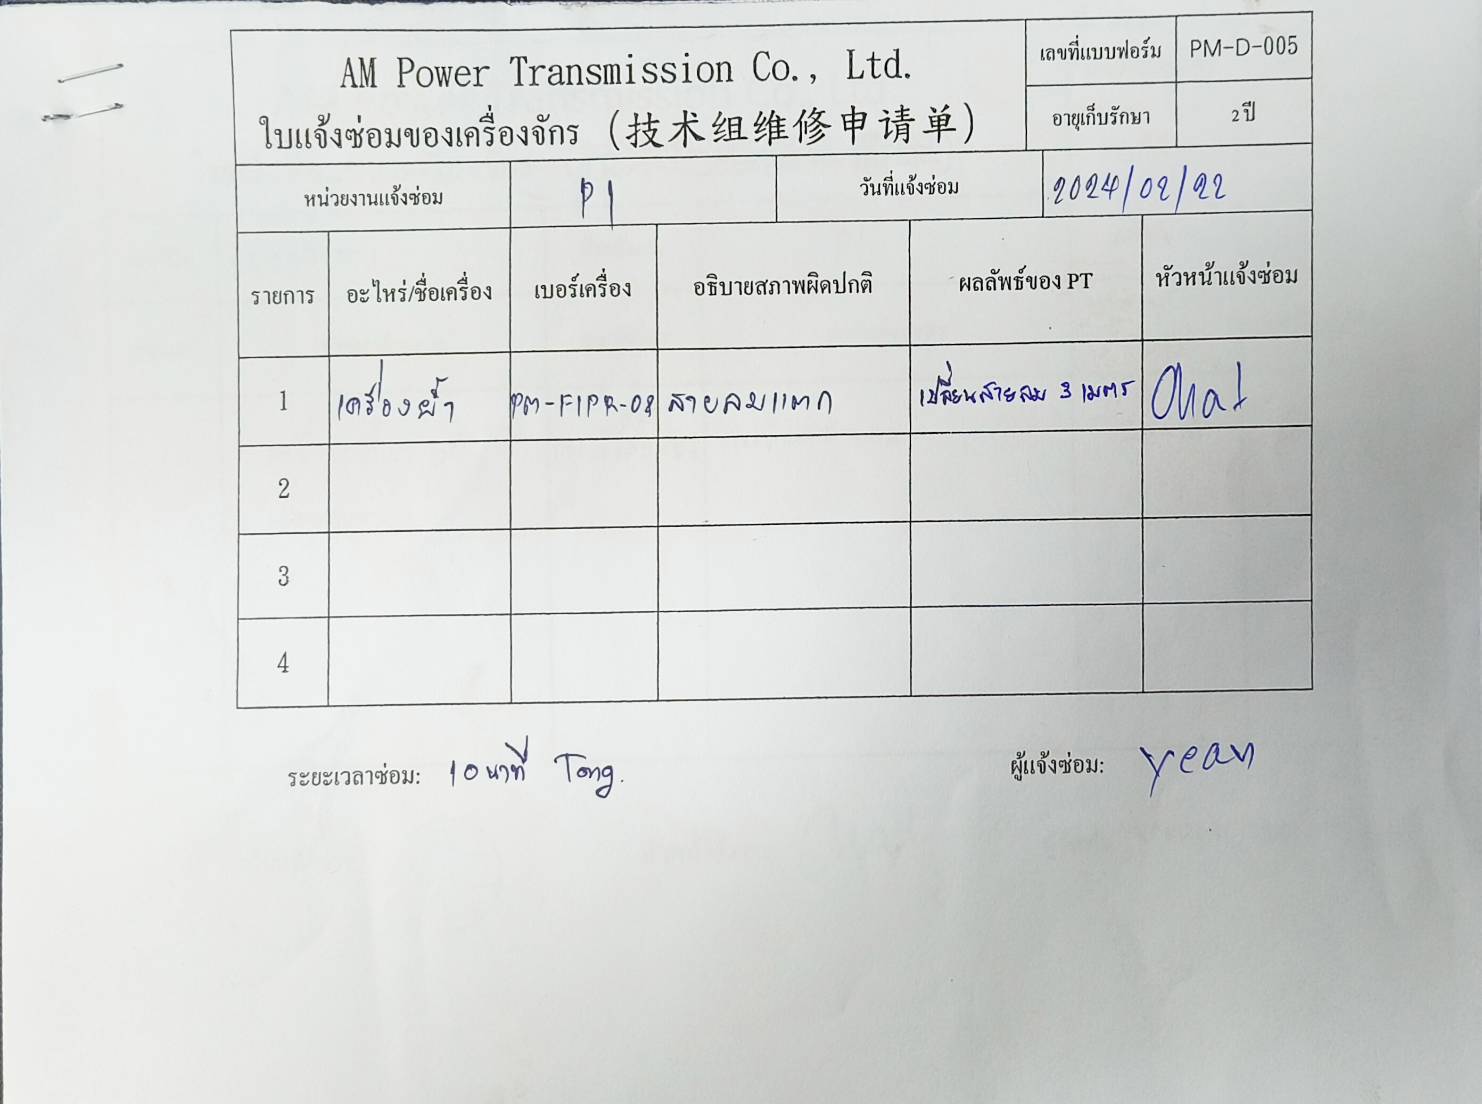 AM Power Transmission Co., Ltd.
ใบแจ้งซ่อมของเครื่องจักร (技术组维修申请单)
เลขที่แบบฟอร์ม PM-D-005
อายุเก็บรักษา 2 ปี
หน่วยงานแจ้งซ่อม P1 วันที่แจ้งซ่อม 2024/02/22
รายการ อะไหร่/ชื่อเครื่อง เบอร์เครื่อง อธิบายสภาพผิดปกติ ผลลัพธ์ของ PT หัวหน้าแจ้งซ่อม
1 เครื่องย้ำ PM-FIPR-08 สายลมแตก เปลี่ยนสายลม 3 เมตร
2
3
4
ระยะเวลาซ่อม: 10 นาที Tong. ผู้แจ้งซ่อม: yean